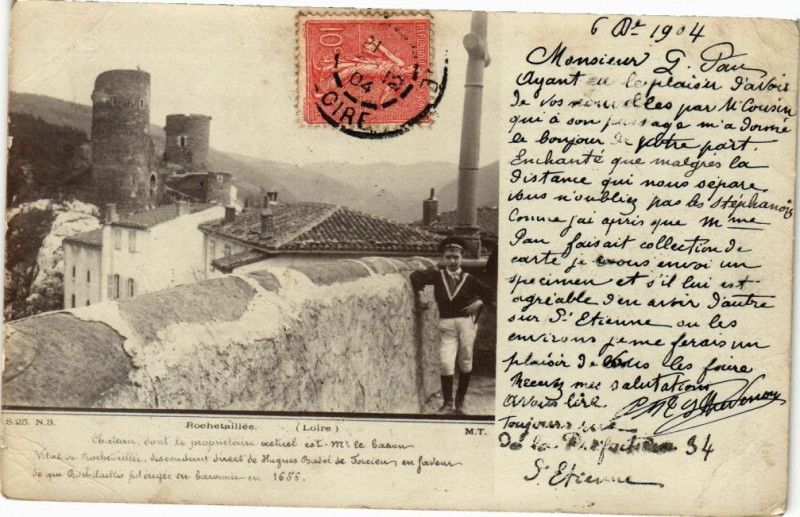 6 Dre 1904
Monsieur G. Pau
Ayant eu le plaisir d'avoir
de vos nouvelles par Mr Cousin
qui à son passage m'a donné
le bonjour de votre part.
Enchanté que malgrés la
distance qui nous sépare
vous n'oubliez pas les stéphanois
Comme j'ai apris que Mme
Pau faisait collection de
carte je vous envoi un
specimen et s'il lui est
agréable d'en avoir d'autre
sur St Etienne ou les
environs je me ferais un
plaisir de vous les faire
Recevez mes salutations
A vous lire
Toujours rue
De la Préfecture 34
St Etienne
10
LOIRE
S.25. N.3.
Rochetaillée. (Loire)
M.T.
Chateau, dont le propriétaire actuel est Mr le baron
Vital de Rochetaillée, descendant direct de Hugues Badol de Forcieu, en faveur
de qui Rochetaillée fut érigée en baronnie en 1655.